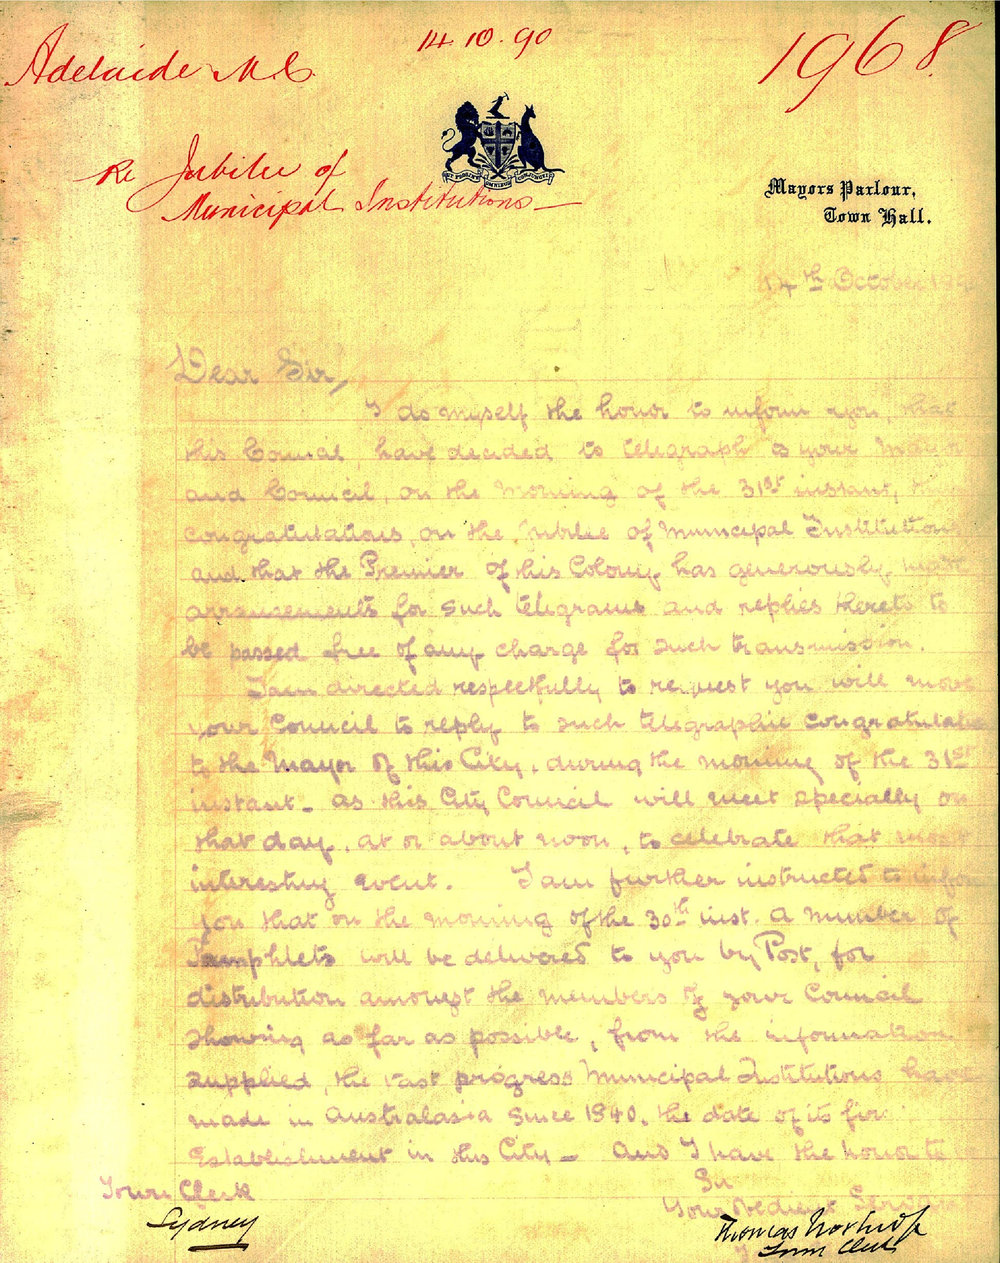 Adelaide M.C.
14.10.90
1968.
Re Jubilee of
Municipal Institutions—
UT PROSINT OMNIBUS CONJUNCTI
Mayors Parlour,
Town Hall.
14th October 189
Dear Sir,
I do myself the honor to inform you, that
this Council, have decided to telegraph to your Mayor
and Council, on the Morning of the 31st instant,
congratulations, on the Jubilee of Municipal Institutions
and that the Premier of this Colony has generously made
arrangements for such telegrams and replies thereto to
be passed free of any charge for such transmission.
I am directed respectfully to request you will move
your Council to reply to such telegraphic congratulations
to the Mayor of this City, during the morning of the 31st
instant— as this City Council will meet specially on
that day, at or about noon, to celebrate that most
interesting event. I am further instructed to inform
you that on the morning of the 30th inst. a number of
Pamphlets will be delivered to you by Post, for
distribution amongst the members of your Council
showing as far as possible, from the information
supplied, the vast progress Municipal Institutions have
made in Australasia since 1840, the date of its first
Establishment in this City— And I have the honor to be
Sir
Your Obedient Servant
Town Clerk
Sydney
Thomas Worsnop
Town Clerk